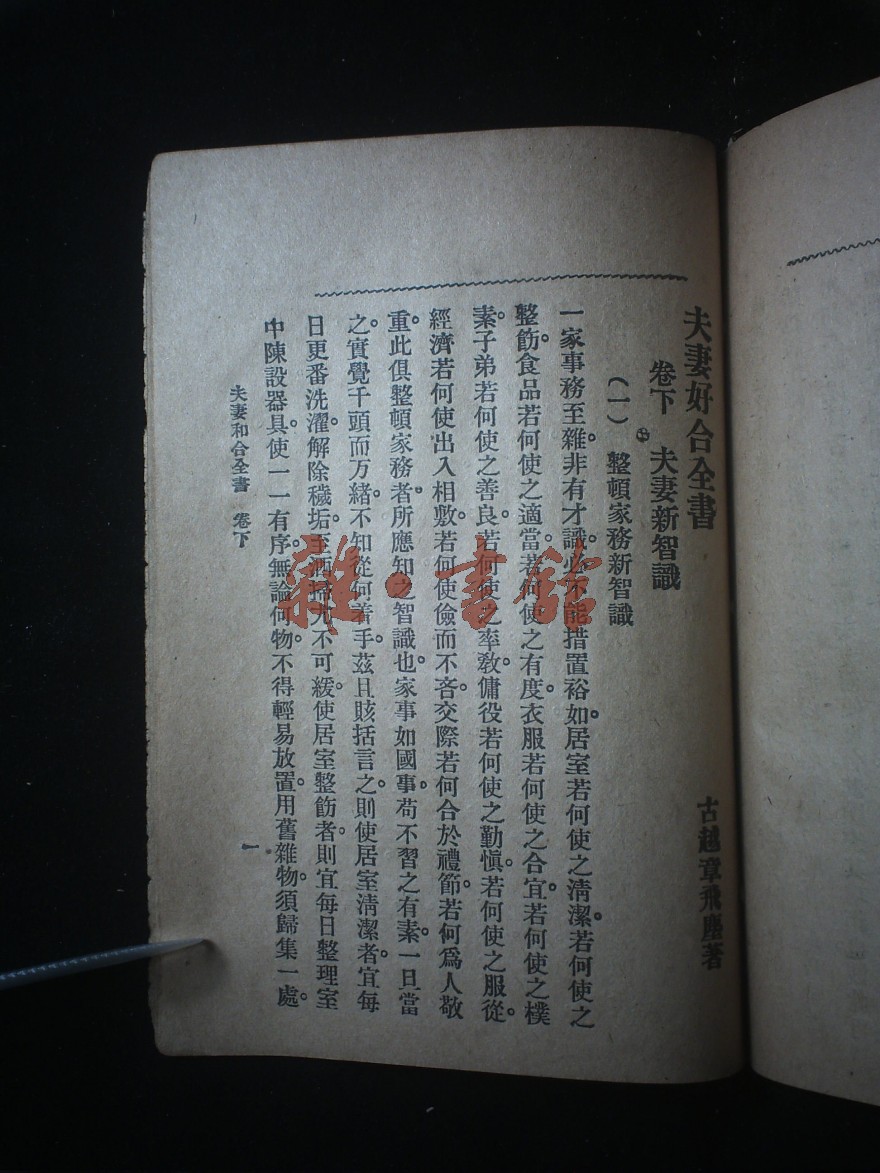 夫妻好合全書
古越章飛塵著
卷下 夫妻新智識
(一) 整頓家務新智識
一家事務至雜。非有才識。必不能措置裕如。居室若何使之清潔。若何使之
整飭。食品若何使之適當。若何使之有度。衣服若何使之合宜。若何使之樸
素。子弟若何使之善良。若何使之率敎。傭役若何使之勤愼。若何使之服從。
經濟若何使出入相敷。若何使儉而不吝。交際若何合於禮節。若何爲人敬
重。此俱整頓家務者。所應知之智識也。家事如國事。苟不習之有素。一旦當
之。實覺千頭而万緒。不知從何着手。茲且賅括言之。則使居室清潔者。宜每
日更番洗濯。解除穢垢。至洒掃尤不可緩。使居室整飭者。則宜每日整理室
中陳設器具。使一一有序。無論何物。不得輕易放置。用舊雜物。須歸集一處。
夫妻和合全書 卷下
一
雜·書館